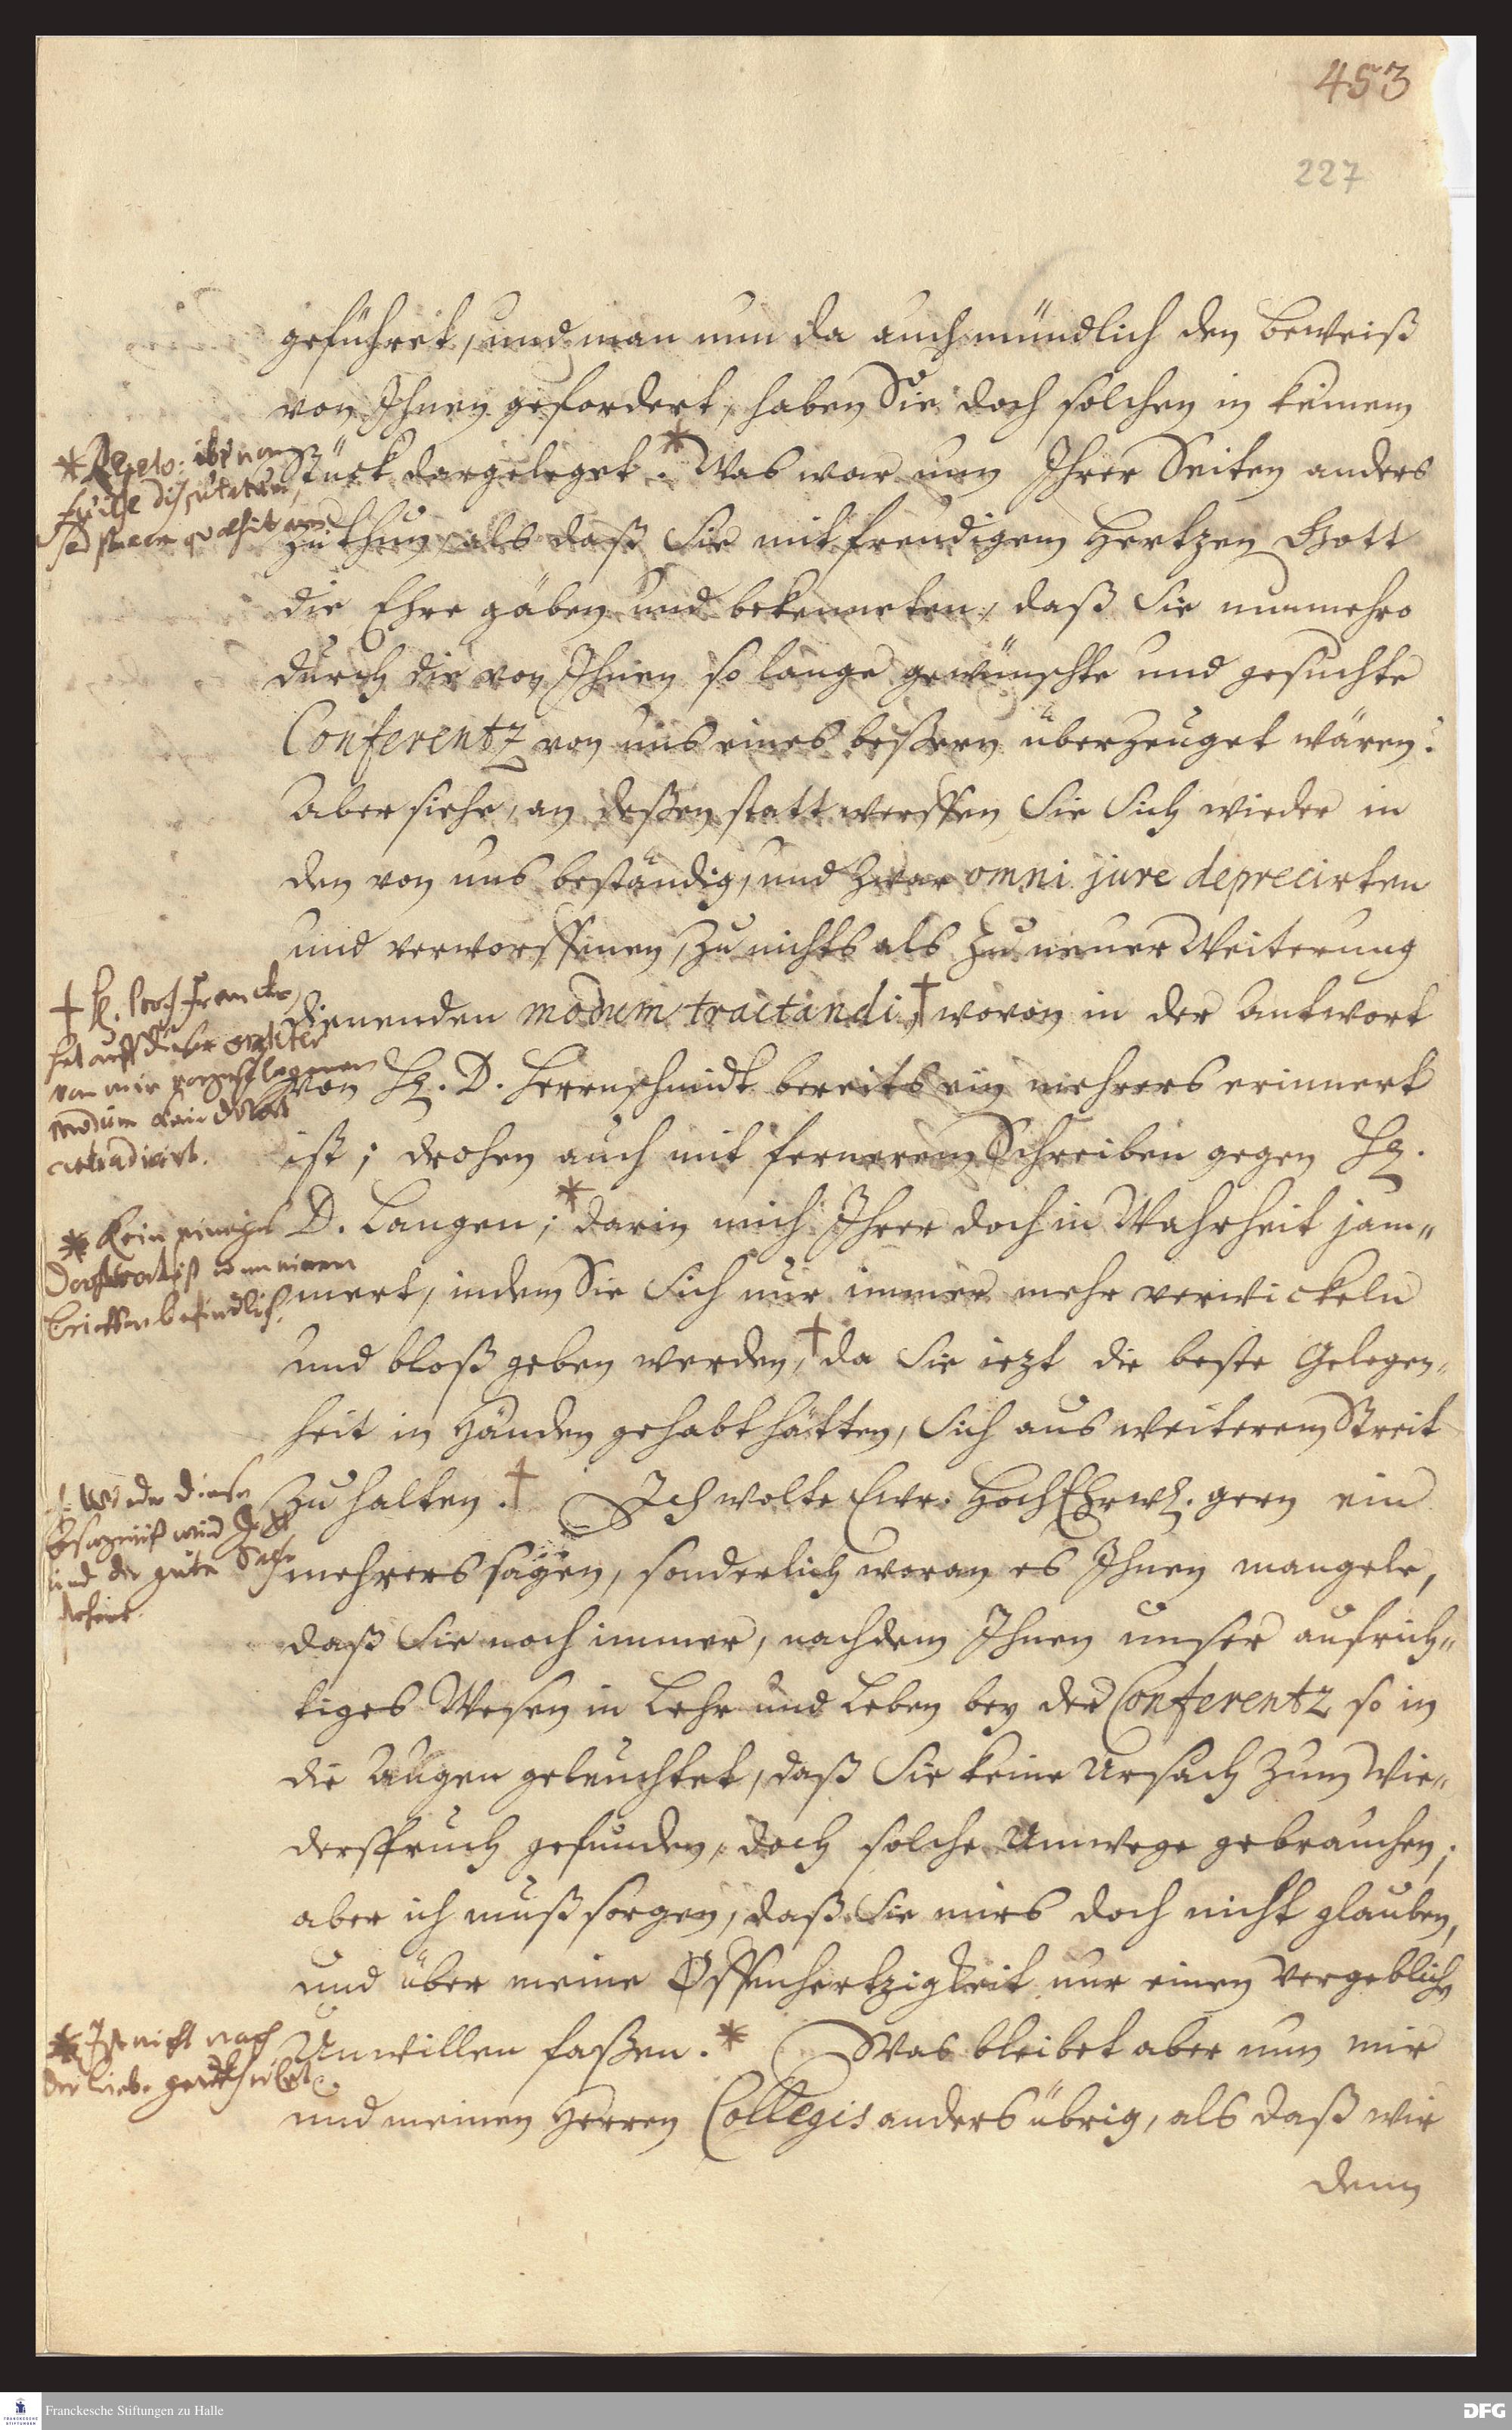 453
227
geführet, und man nun da auch mündlich den beweiß
von Ihnen gefordert, haben Sie doch solchen in keinem
Stück dargeleget.* Was war nun Ihrer Seiten anders
zu thun, als daß Sie mit freudigem Hertzen Gott
die Ehre gäben und bekenneten, daß Sie nunmehro
durch die von Ihnen so lange gewünschte und gesuchte
Conferentz von uns eines beßern überzeuget wären?
Aber siehe, an deßen statt werffen Sie Sich wieder in
den von uns beständig, und zwar omni jure deprecirten
und verworffenen, zu nichts als zu neuer Weiterung
dienenden modum tractandi,† wovon in der Antwort
von H. D. Herrnschmidt bereits ein mehrers erinnert
ist; drohen auch mit fernerem Schreiben gegen H.
D. Langen;* darin mich Ihrer doch in Wahrheit jam-
mert, indem Sie Sich nur immer mehr verwickeln
und bloß geben werden,† da Sie iezt die beste Gelegen-
heit in Händen gehabt hätten, Sich aus weiterem Streit
zu halten.† Ich wolte Ewr. HochEhrw. gern ein
mehrers sagen, sonderlich woran es Ihnen mangele,
daß Sie noch immer, nachdem Ihnen unser aufrich-
tiges Wesen in Lehr und Leben bey der Conferentz so in
die Augen geleuchtet, daß Sie keine Ursach zum Wie-
derspruch gefunden, doch solche Umwege gebrauchen;
aber ich muß sorgen, daß Sie mirs doch nicht glauben,
und über meine Offenhertzigkeit nur einen vergeblichen
Unwillen faßen.* Was bleibet aber nun mir
und meinen Herren Collegis anders übrig, als daß wir
denn
* Repeto: ibi non
fuisse disputatum,
sed
† H. Prof. Francke
hat auff diesen
von mir vorgeschlagenen
modum kein Wort
contradicirt.
* Kein einziges
Drohwort ist in meinen
Brieffen befindlich.
† Wieder diese
Besorgniß wird Gott
und die gute Sache
* Ist nicht nach
der Liebe geurtheilet.
Franckesche Stiftungen zu Halle
FRANCKESCHE STIFTUNGEN
DFG